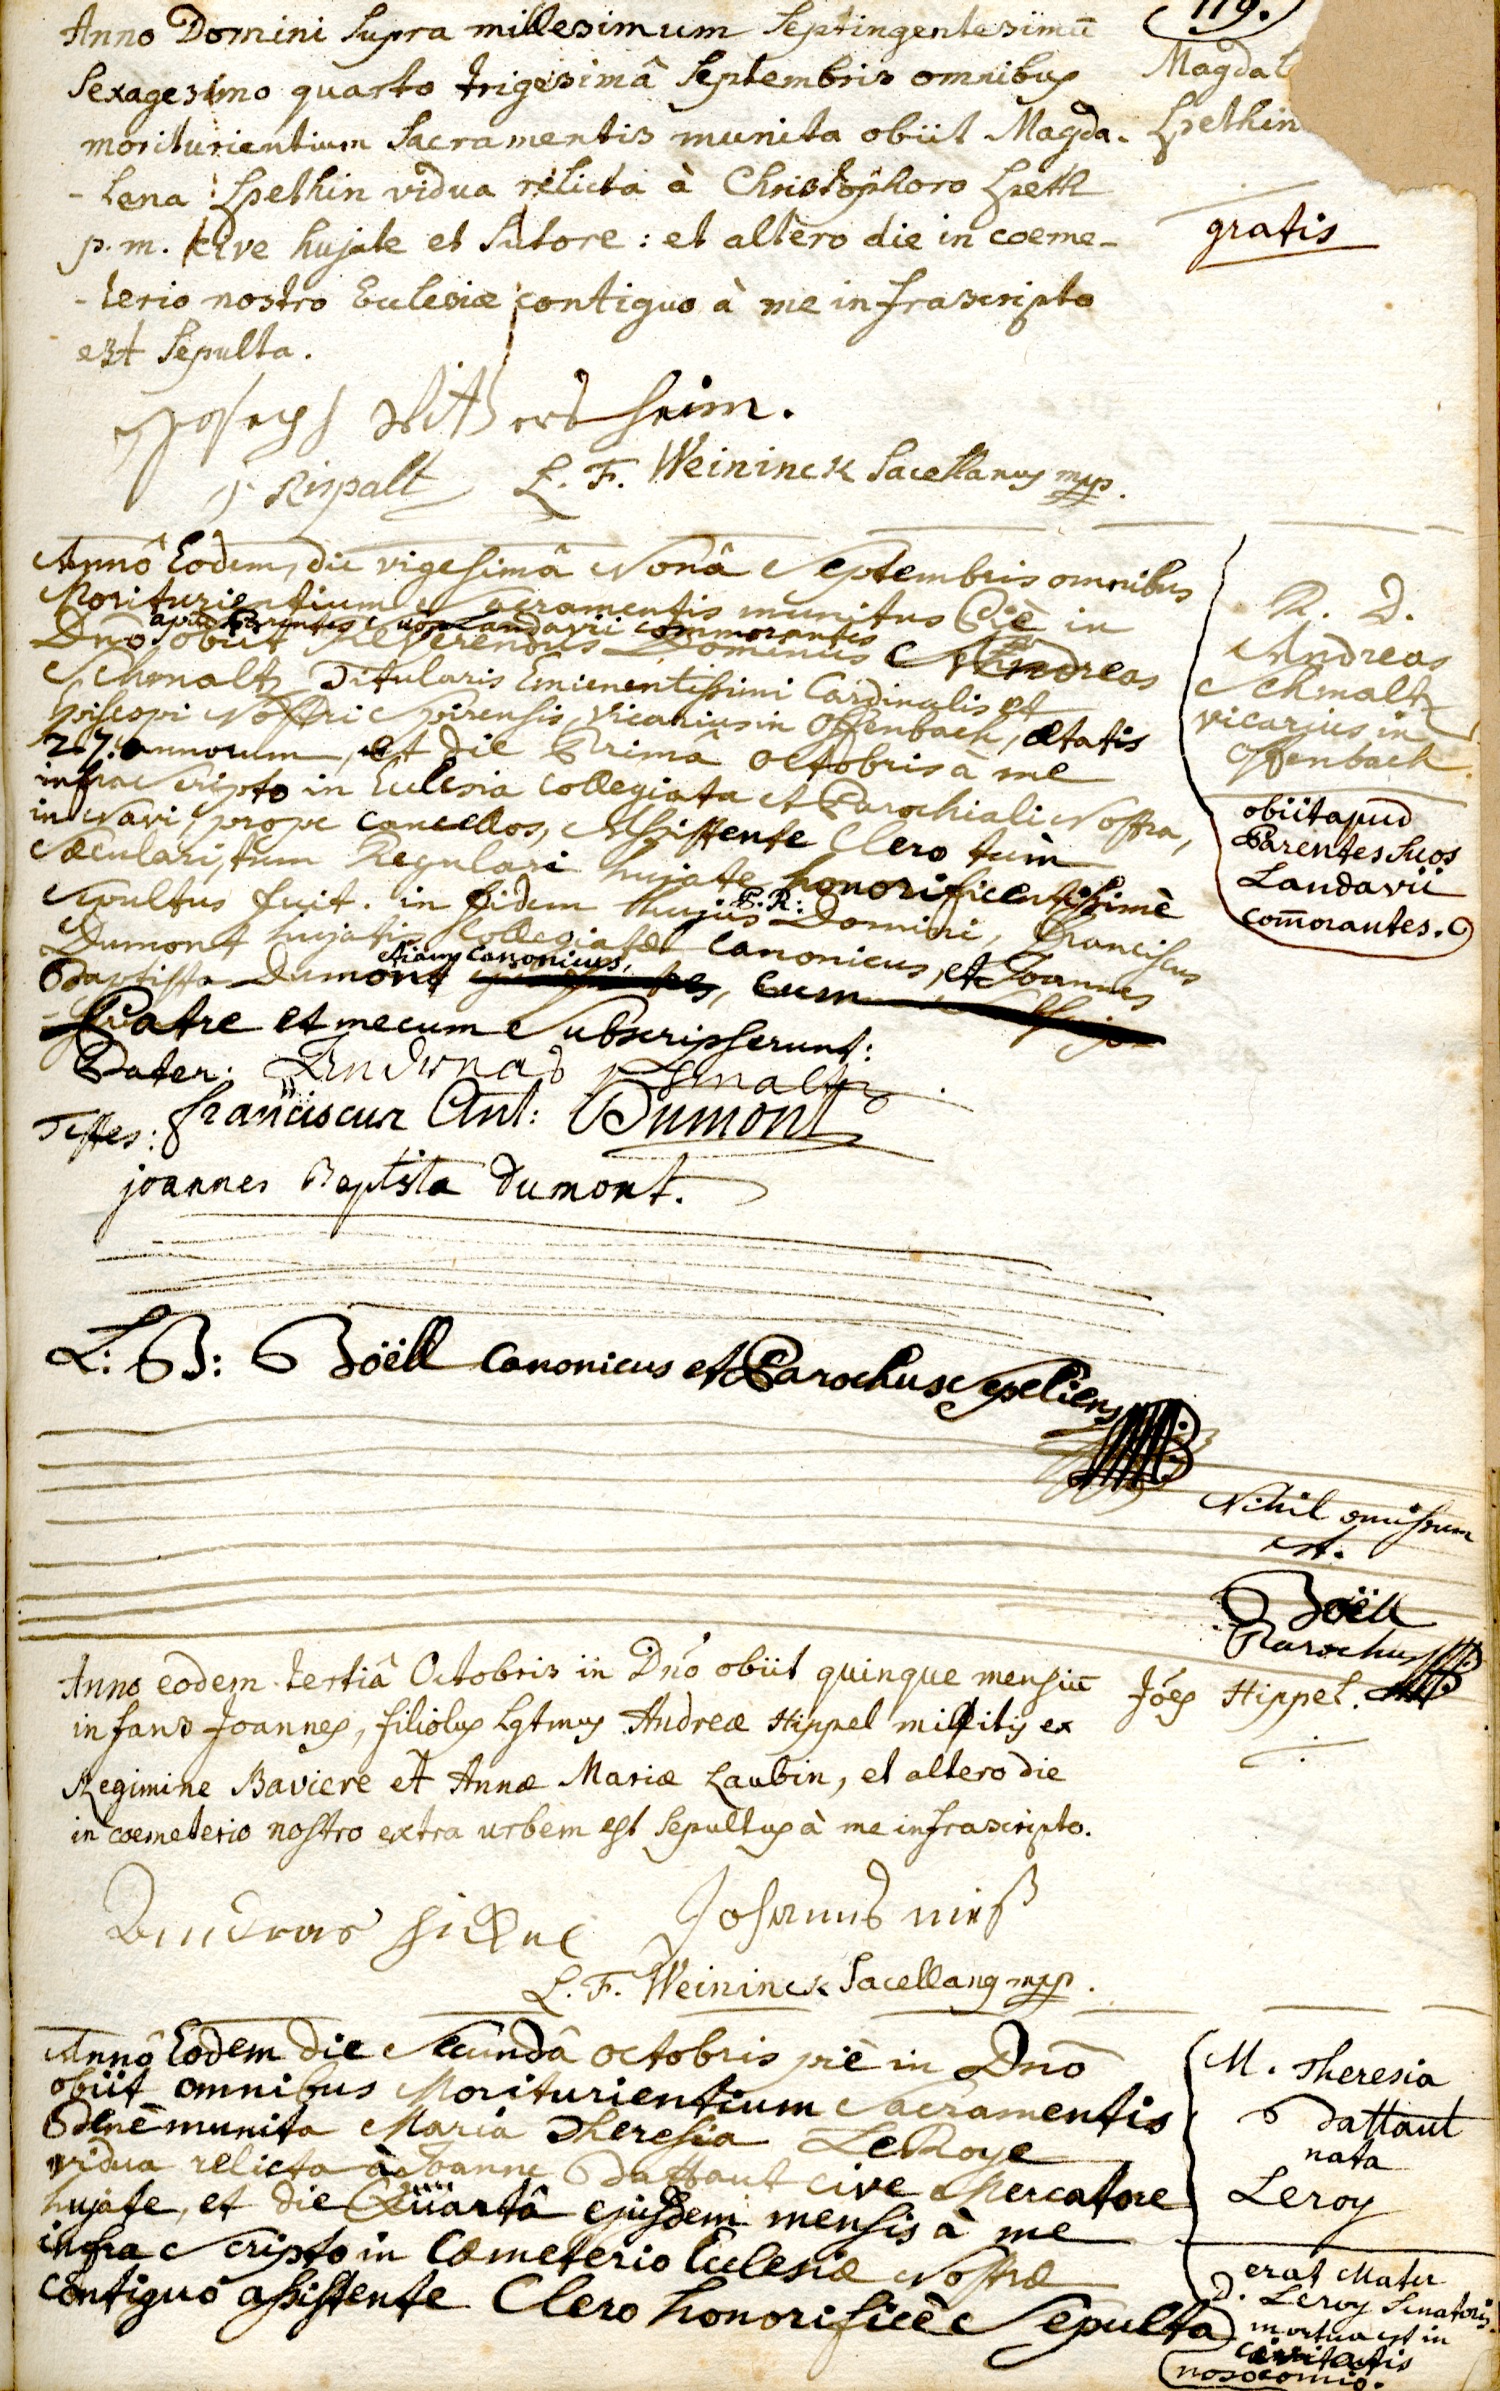 119.
Anno Domini Supra millesimum Septingentesimū
Sexagesimo quarto trigesimâ Septembris omnibus
moriturientium Sacramentis munita obiit Magda-
-lena Spethin vidua relicta à Christophoro Speth
p. m. cive hujate et Sutore : et altero die in coeme-
-terio nostro Ecclesiæ contiguo à me infrascripto
est Sepulta.
Magdal
Spethin
gratis
Joseph
L. F. Weininck Sacellanus mpp.
Annô Eodem, die vigesimâ Nonâ Septembris omnibus
Moriturientium Sacramentis munitus Piè in
apud Parentes suos Landavii commorantes
Dnō obiit Reverendus Dominus Andreas
Schmaltz Titularis Eminentissimi Cardinalis et
Episcopi Nostri Spirensis, Vicarius in Offenbach, ætatis
27: annorum, et die Primâ octobris à me
infra Scripto in Ecclesia Collegiata et Parochiali Nostra,
in Navi, prope Cancellos, Assistente Clero tùm
Sæculari, tum Regulari hujate honorificentissimè
Sepultus fuit. in fidem hujus P. R: Domini, Franciscus
Dumont hujatis Collegiatæ Canonicus, et Joannes
Baptista Dumont etiam Canonicus, Cum
Patre et mecum Subscripserunt:
Pater: Andreas Schmaltz
Testes: Franciscus Ant: Dumont
joannes Baptista Dumont.
R. D.
Andreas
Schmaltz
vicarius in
Offenbach.
obiit apud
Parentes Suos
Landavii
com̄orantes.
L: B: Böëll Canonicus et Parochus Sepeliens
Nihil omissum
est.
Böëll
Parochus
Anno eodem tertiâ Octobris in Dnō obiit quinque mensiū
infans Joannes, filiolus Lgtmus Andreæ Hippel militis ex
Regimine Baviere et Annæ Mariæ Laubin, et altero die
in coemeterio nostro extra urbem est Sepultus à me infrascripto.
Jōes Hippel.
Andreas
Johannes
L. F. Weininck Sacellanus mpp.
Annô Eodem die Secundâ octobris piè in Dnō
obiit omnibus Moriturientium Sacramentis
benè munita Maria Theresia LeRoye
vidua relicta à Joanne Battaut cive Mercatore
hujate, et die Quartâ ejusdem mensis à me
infra Scripto in Cœmeterio Ecclesiæ Nostræ
Contiguô assistente Clero honorificè Sepulta
M. Theresia
Battaut
nata
Leroy
erat Mater
D. Leroy Senatoris.
mortua est in
civitatis
nosocomio.